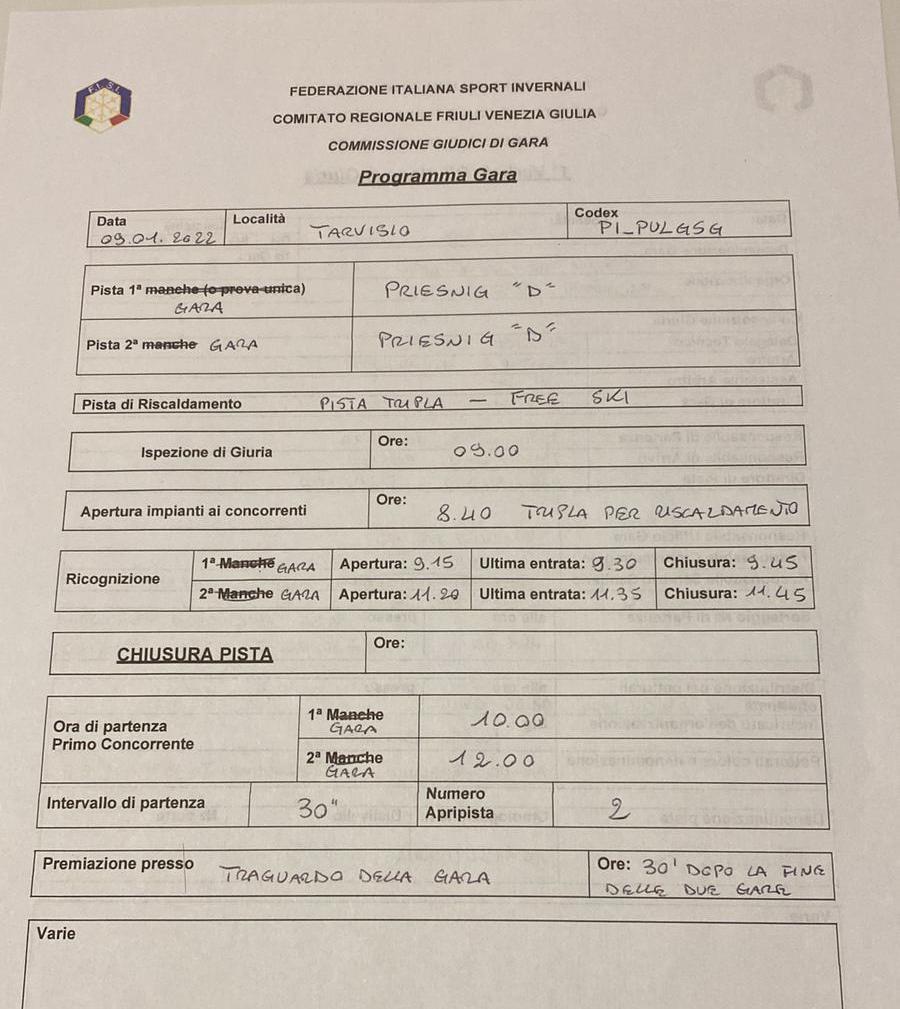 F.I.S.I.
FEDERAZIONE ITALIANA SPORT INVERNALI
COMITATO REGIONALE FRIULI VENEZIA GIULIA
COMMISSIONE GIUDICI DI GARA
Programma Gara
Data 09.01.2022 Località TARVISIO Codex PI_PULGSG
Pista 1ª manche (o prova unica) GARA PRIESNIG "D"
Pista 2ª manche GARA PRIESNIG "D"
Pista di Riscaldamento PISTA TRIPLA — FREE SKI
Ispezione di Giuria Ore: 09.00
Apertura impianti ai concorrenti Ore: 8.40 TRIPLA PER RISCALDAMENTO
Ricognizione
1ª Manche GARA Apertura: 9.15 Ultima entrata: 9.30 Chiusura: 9.45
2ª Manche GARA Apertura: 11.20 Ultima entrata: 11.35 Chiusura: 11.45
CHIUSURA PISTA Ore:
Ora di partenza
Primo Concorrente
1ª Manche GARA 10.00
2ª Manche GARA 12.00
Intervallo di partenza 30" Numero Apripista 2
Premiazione presso TRAGUARDO DELLA GARA Ore: 30' DOPO LA FINE
DELLE DUE GARE
Varie